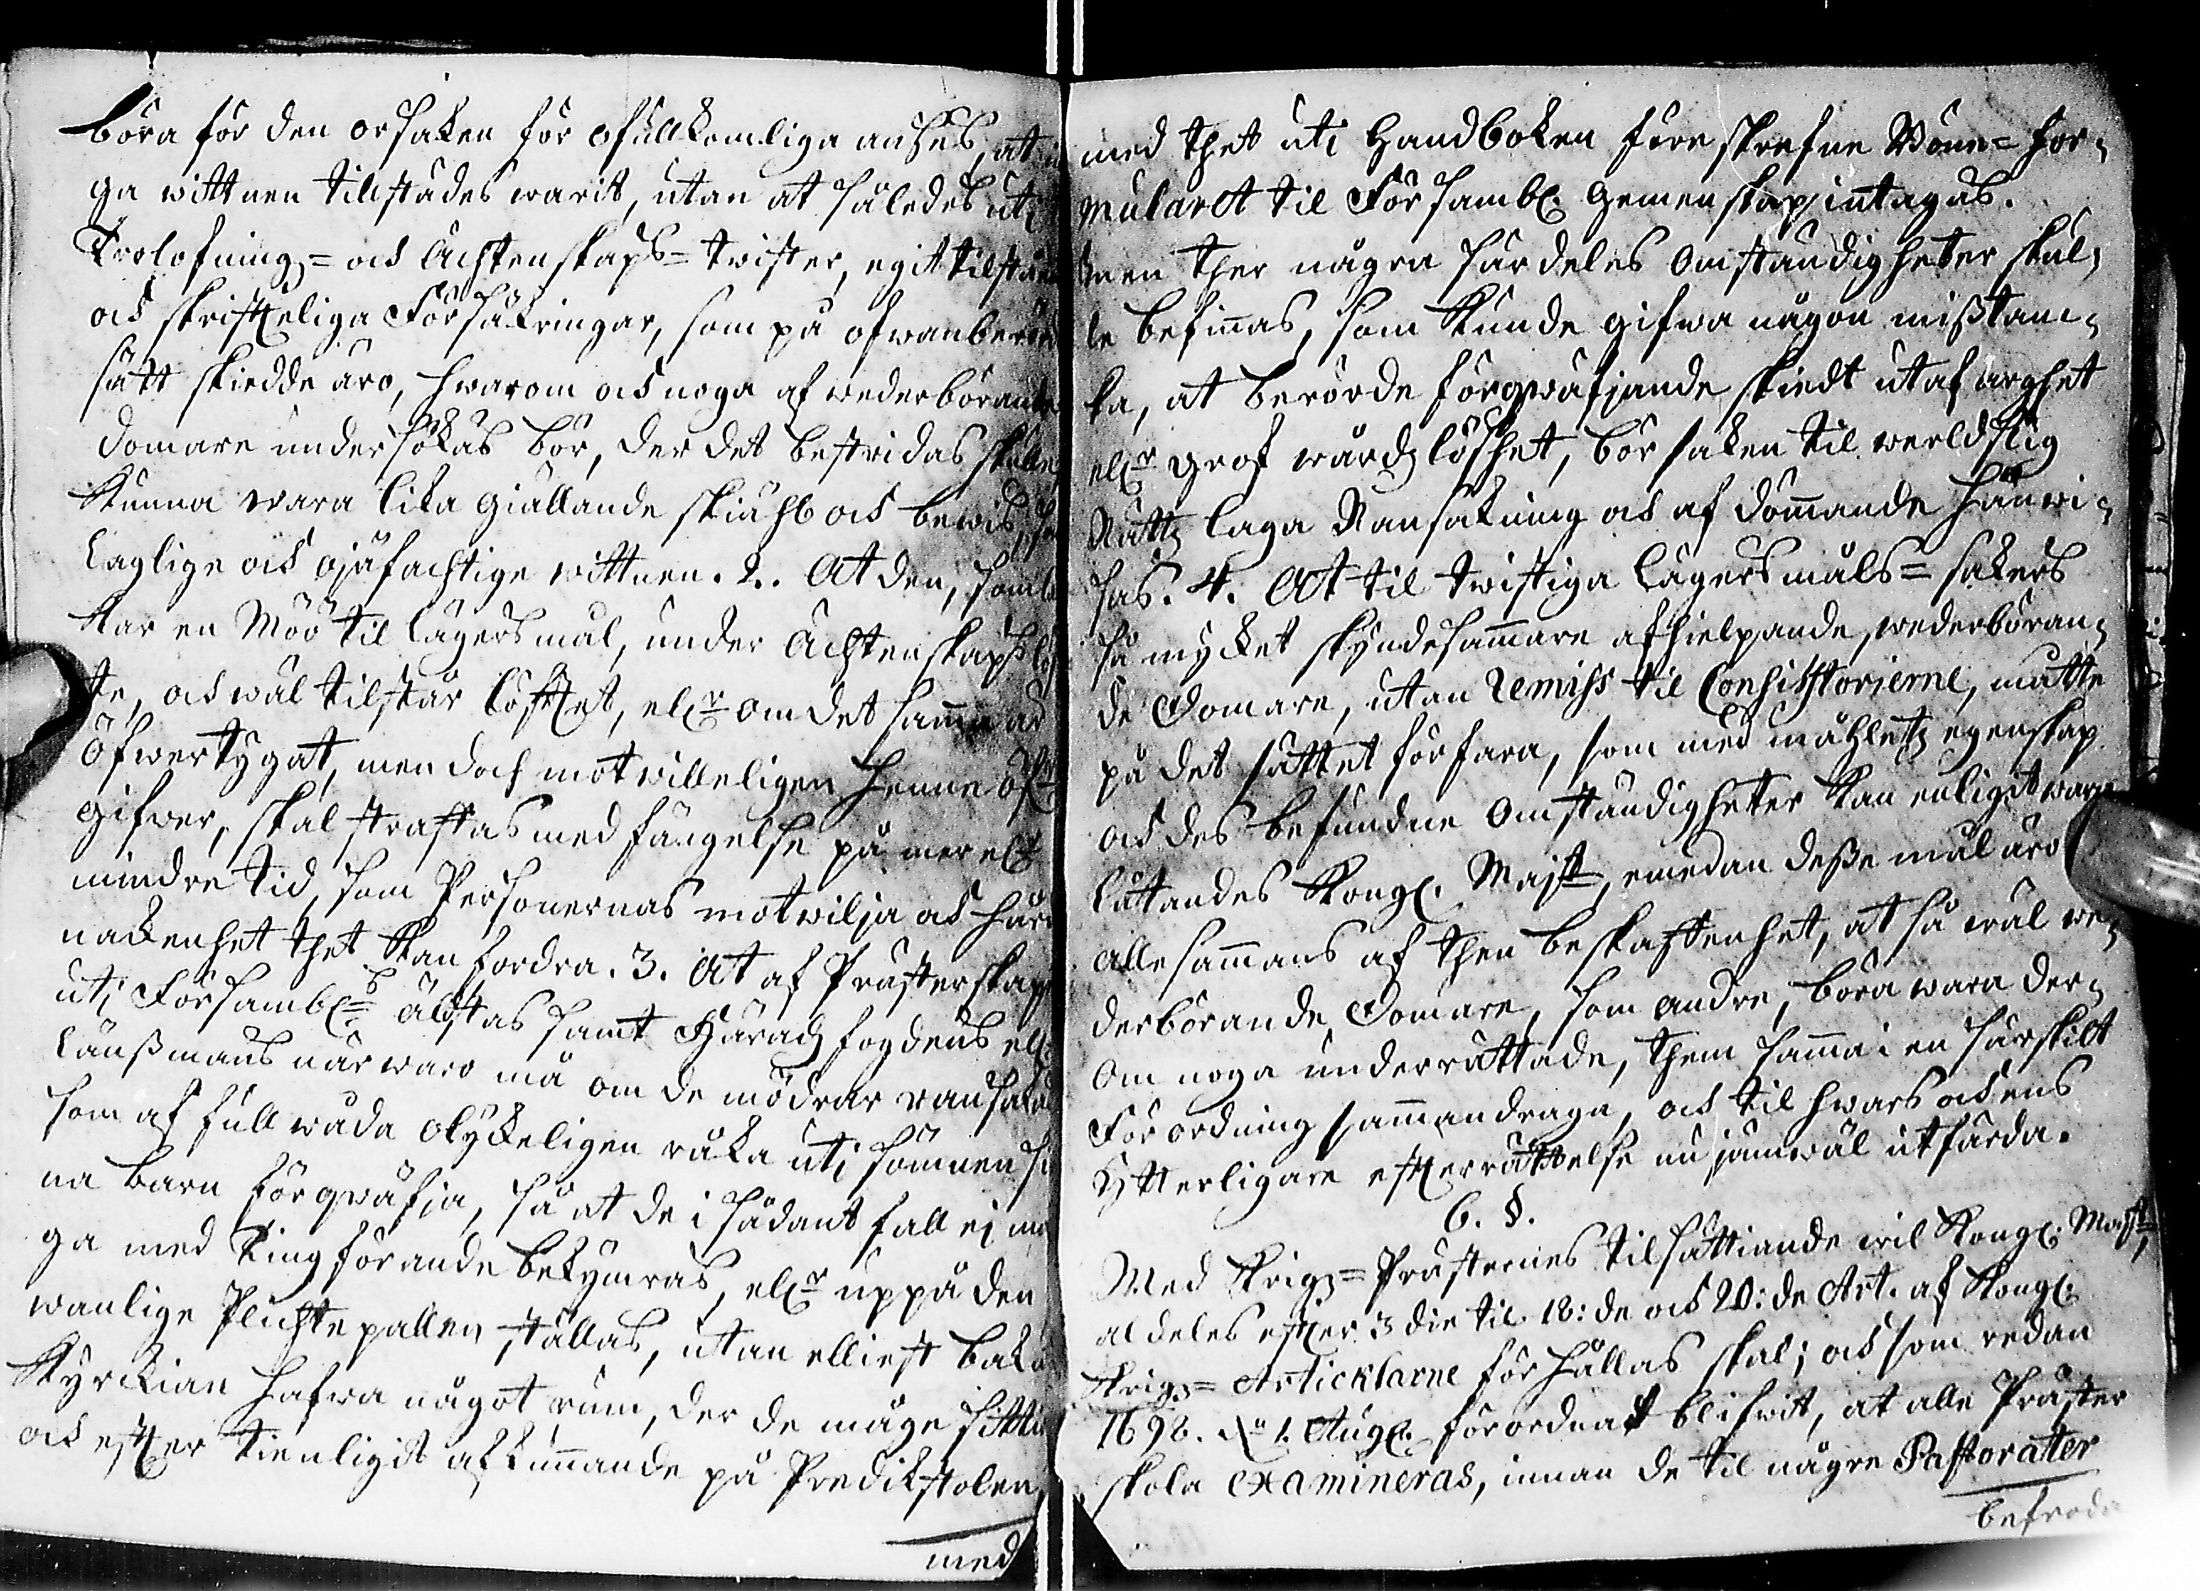 böra för den orsaken för ofullkomliga anses, at
ga wittnen tillstädes warit, utan at således uti
Trolofnings= ochÄchtenskaps= twister, egit tilstån
och skrifteliga Försäkringar, som på ofwanberörd
sätt skiedde äro, hwarom och noga af wederbörande
domare undersökas bör, der det bestridas skulle,
kunna wara lika giällande skiähl och bewis, som
laglige och ojäfachtige wittnen. 2. At den, som låc
kar en Möö til lägersmål, under Ächtenskaps löf
te, och wäl tilstår löftet, eller om det samma är
öfwertygat, men doch motwilleligen henne öfr
gifwer, skal straffas med fängelse på mer eller
mindre tid, som Personernas motwilja och hård
nackenhet thet kan fordra. 3. At af Prästerskapet
uti Försambl:s älstas samt Häradz fogdens eller
Länßmans närwaro må om de mödrar ransakas
som af full wåda olyckeligen råka uti sömnen si
na barn förqwäfja, så at de i sådant fall ej må
ga med Ting förande bekymras, eller uppå den
wanlige Plichtepallen ställas, utan elliest bak i
Kyrckian hafwa något rum, der de måge sittia
och efter tienligit afkunnande på Predikstolen,
med
med thet uti Handboken föreskrefne Böne= for-
mularet til Försambl. gemenskap intagas.
Men ther några särdeles omständigheter skul-
le befinnas, som kunde gifwa någon mißtanc-
ka, at berörde förqwäfjande skiedt utaf arghet
eller grof wårdzlöshet, bör saken til werldslig
Rättz laga Ransakning och afdömmande hänwi-
sas. 4. At til twistiga lägersmåls= sakers
så mycket skyndesammare afhielpande, wederböran-
de Domare, utan Remiss til Consistorierne, måtte
på det sättet förfara, som med måhletz egenskap
och des befundne omständigheter kan enligit wara
låttandes Kongl. Majst:t, emedan deße mål äro
allesammans af then beskaffenhet, at så wäl we-
derbörande Domare, som andre, böra wara der-
om noga underrättade, them samma i en särskilt
Förordning sammandraga, och til hwars och ens
ytterligare efterrättelse nu jämwäl utfärda.
6. §.
Med Krigz= Prästernes tilsättiande wil Kongl. Majst:t,
aldeles efter 3 die til 18:de och 20:de Art. af Kongl.
Krigz= Articklarne förhållas skal; och som redan
1698. d. 1. Aug. förordnat blifwit, at alle Präster
skola examineras, innan de til någre Pastorater
befroda